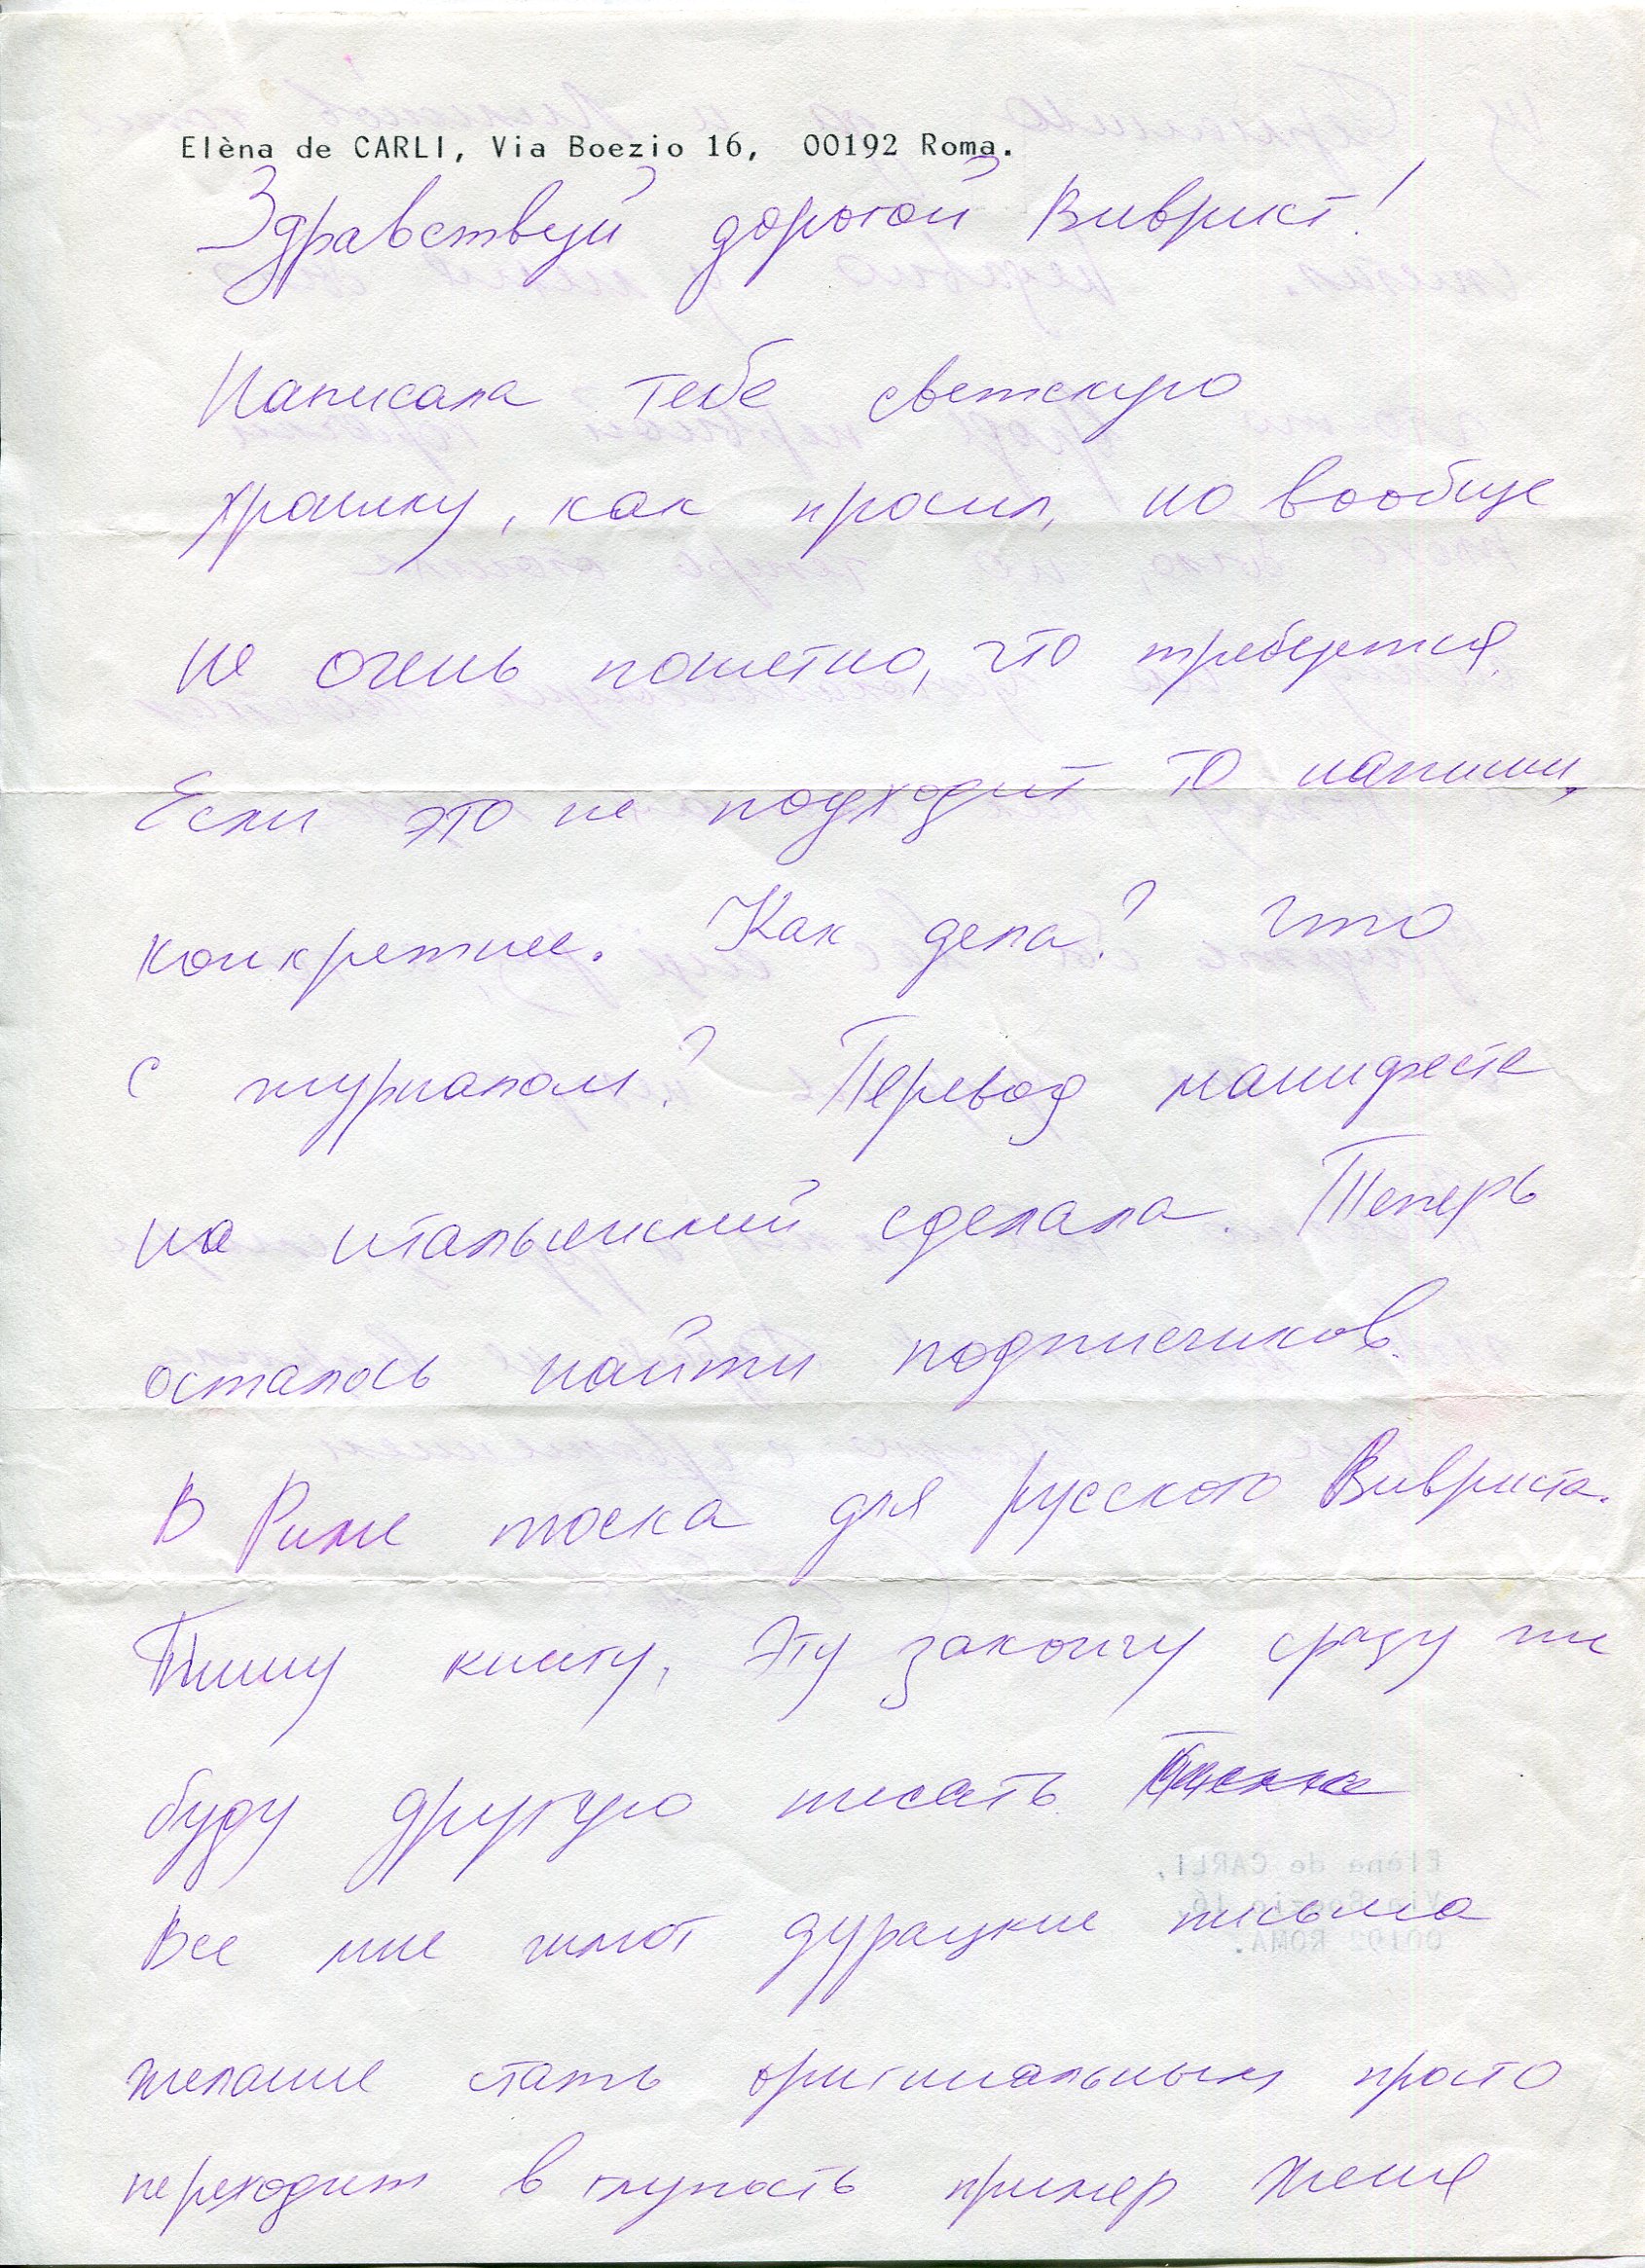 Elèna de CARLI, Via Boezio 16, 00192 Roma.
Здравствуй дорогой Виврист!
Написала тебе светскую
хронику, как просил, но вообще
не очень понятно, что требуется.
Если это не подходит то напиши,
конкретнее. Как дела? Что
с журналом? Перевод манифеста
на итальянский сделала. Теперь
осталось найти подписчиков.
В Риме тоска для русского Вивриста.
Пишу книгу, Эту закончу сразу же
буду другую писать.
Все мне шлют дурацкие письма
желание стать оригинальным просто
переходит в глупость пример Женя
Elèna de CARLI,
Via Boezio 16,
00192 ROMA.